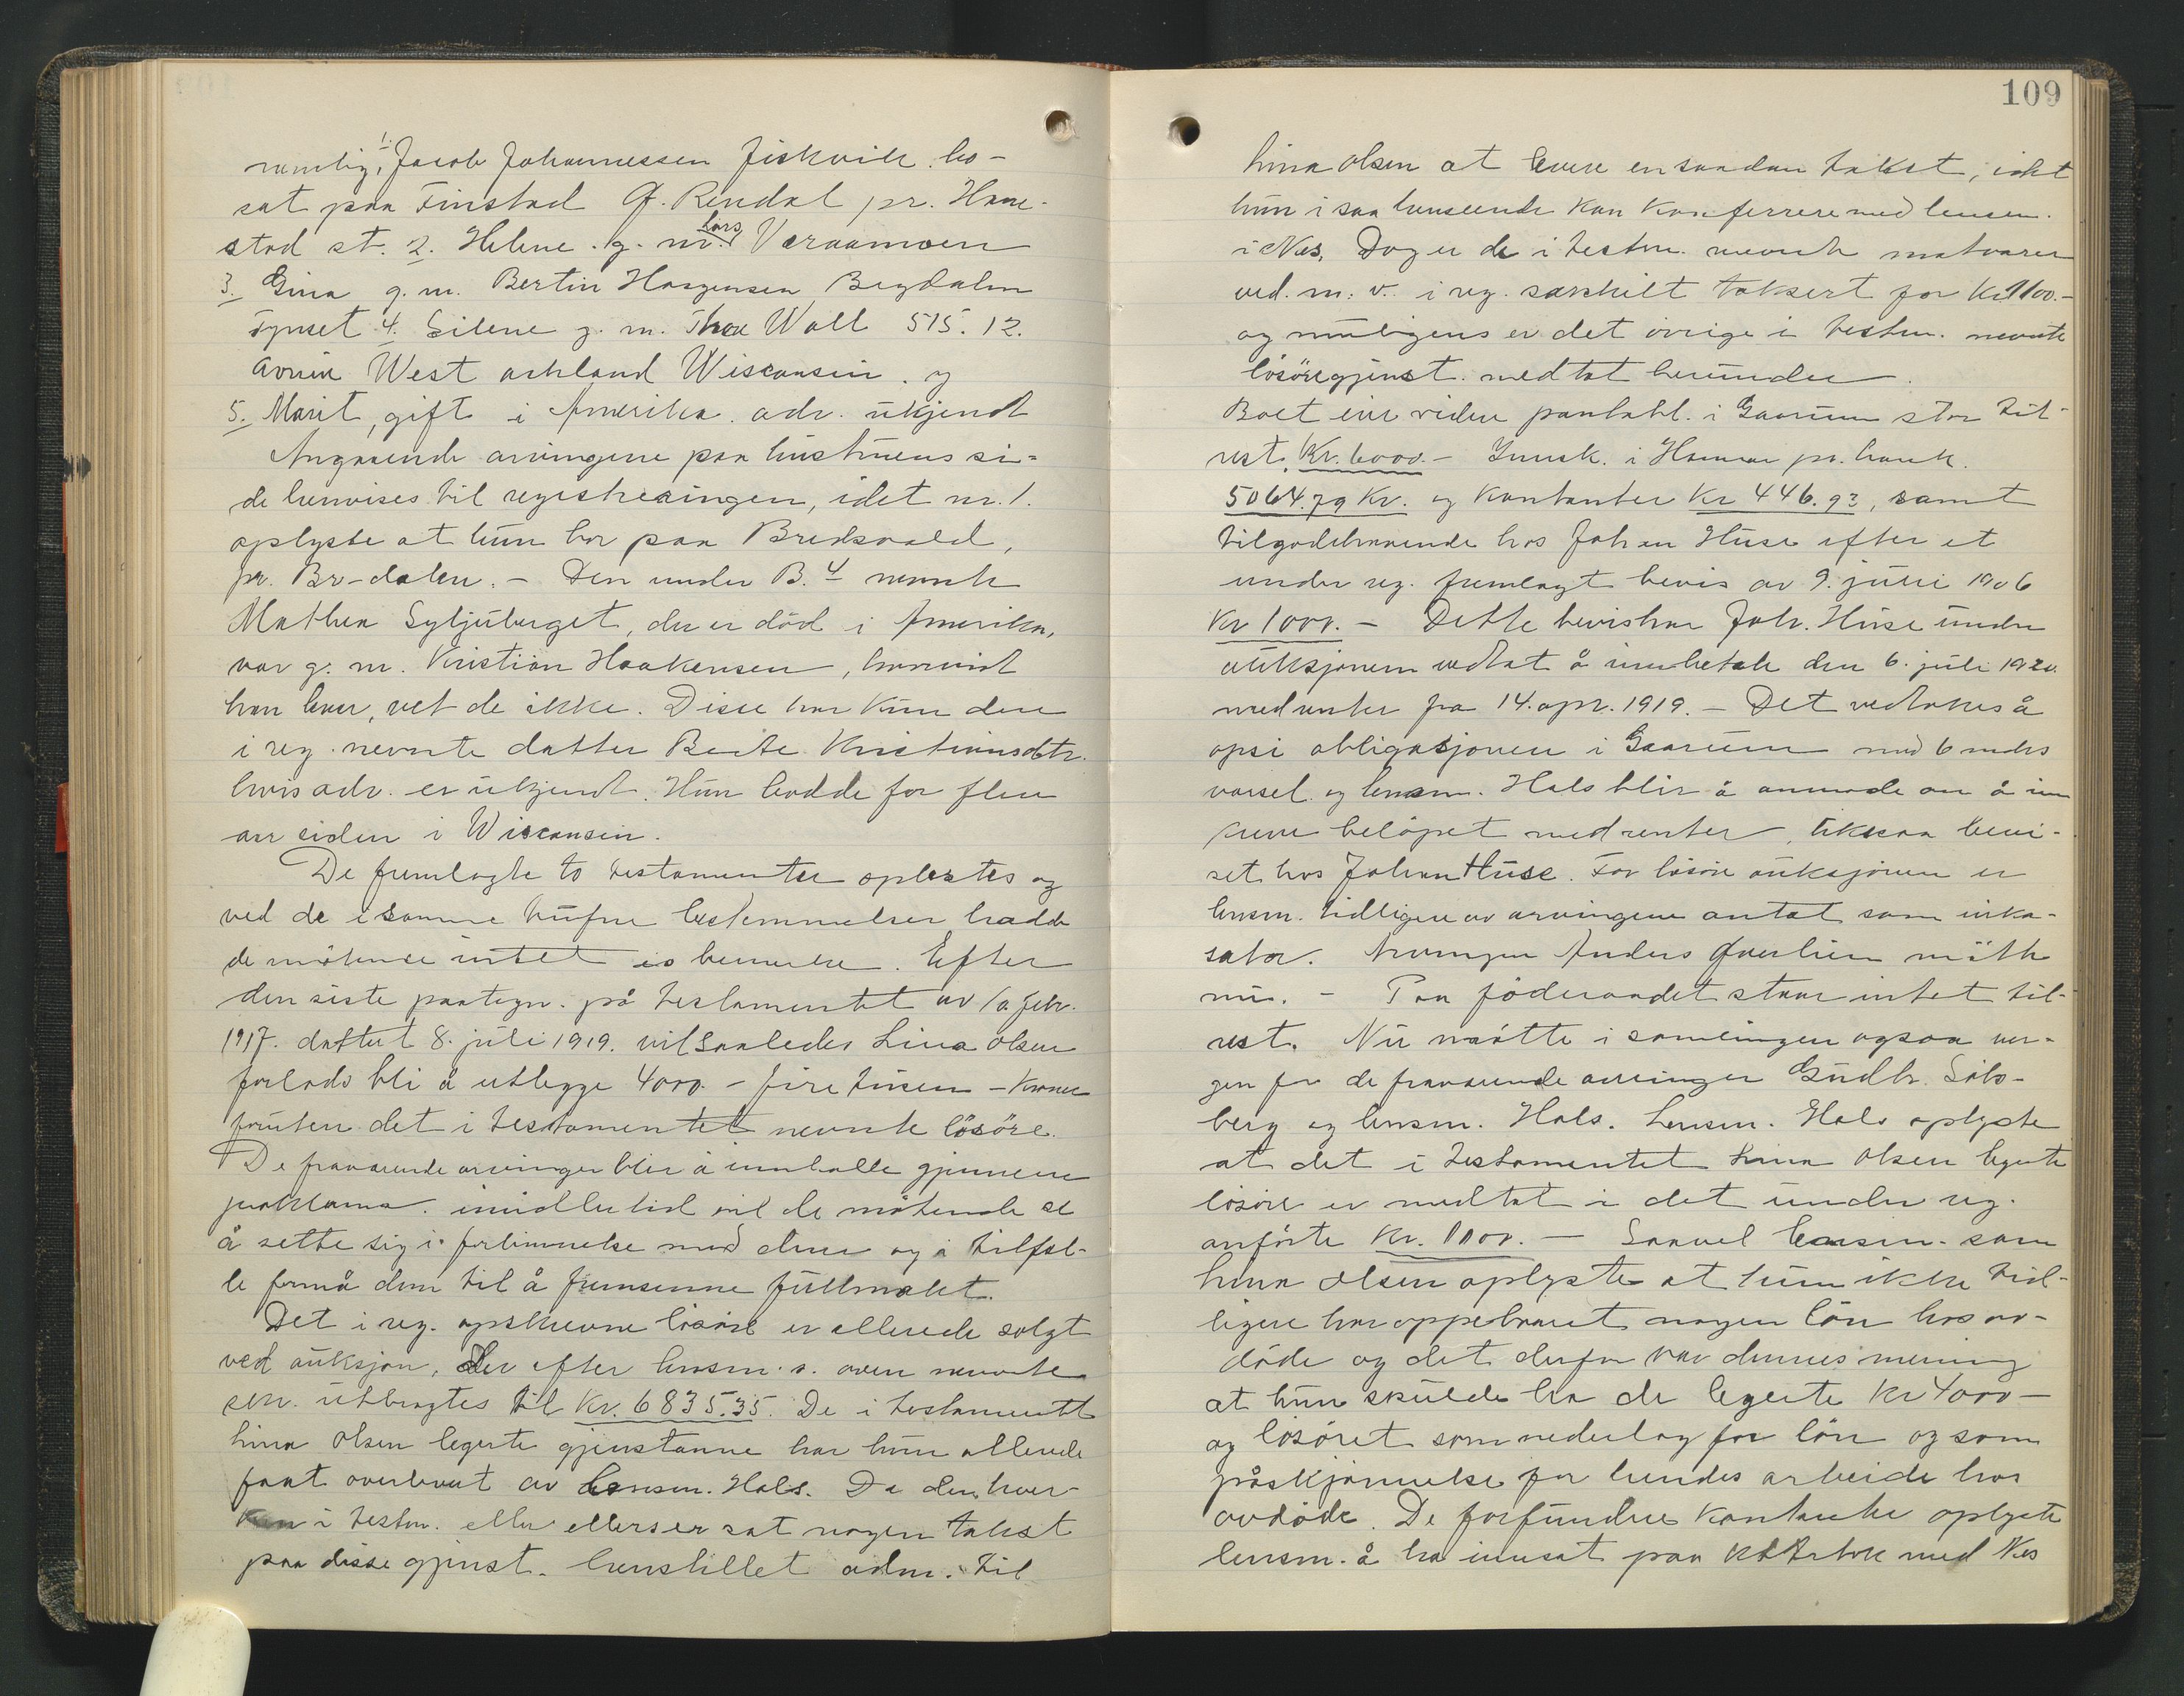 nemlig: 1. Jacob Johannessen Fiskvik bo-
sat paa Finstad Ø. Rendal pr. Hane-
stad st. 2. Helene g. m. Lars Veraamoen
3. Gina g. m. Bertin Haagensen Bergdalen
Tynset 4. Eilene g. m. Thore Wall 515. 12.
West ashland Wisconsin. og
5. Marit, gift i Amerika. adr. ukjendt
Angaaende arvingene paa hustruens si-
de henvises til registreringen, idet nr. 1.
oplyste at hun bor paa Bredsvald,
pr. Br-dalen. - Den under B. 4 nevnte
Mathea Syljuberget, der er död i Amerika,
var g. m. Kristian Haakensen, hvorvidt
han lever, vet de ikke. Disse har kun den
i reg. nevnte datter Beate Kristiansdtr.
hvis adr. er ukjendt. Hun bodde for flere
aar siden i Wisconsin.
De fremlagte to testamenter oplestes og
ved de i samme trufne bestemmelser hadde
de mötende intet at bemerke. Efter
den siste paategn. på testamentet av 10 febr.
1917. datert 8. juli 1919. vil saaledes Lina Olsen
forlods bli å utlegge 4000. - fire tusen - kroner
foruten det i testamentet nevnte lösöre.
De fraværende arvinger blir å innkalle gjennem
proklama. imidlertid vil de mötende se
å sette sig i forbinnelse med dem og i tilfel-
le formå dem til å fremsenne fullmakt.
Det i reg. opskrevne lösöre er allerede solgt
ved auksjon, der efter lensm. s. oven nevnte
skr. utbragtes til Kr. 6835.35. De i testamentet
Lina Olsen legerte gjenstanne har hun allerede
faat overlevert av lensm. Hals. Da der hver-
ken i testm. eller ellers er sat nogen takst
paa disse gjenst. henstillet adm. til
109
Lina Olsen at levere en saadan takst, idet
hun i saa henseende kan konferrere med lensm.
i Nes. Dog er de i testm. nevnte matvarer
ved. m. v. i reg. særskilt taksert for Kr 1100.-
og muligens er det övrige i testm. nevnte
lösöregjenst. medtat herunder.
Boet eier videre pantobl. i Gaarum stor til-
rest. Kr. 6000.- Innsk. i Hamar pr. bank.
5064.79 Kr. og kontanter Kr 446.92, samt
tilgodehavende hos Johan Huse efter et
under reg. fremlagt bevis av 9. juni 1906
Kr 1000. - Dette bevis har Joh. Huse under
auksjonen vedtat å innbetale den 6. juli 1920.
med renter fra 14. apr. 1919. - Det vedtokes å
opsi obligasjonen i Gaarum med 6 mdrs
varsel og lensm. Hals blir å anmode om å inn
kreve belöpet med renter, likesaa bevi-
set hos Johan Huse. For lösöre auksjonen er
lensm. tidligere av arvingene antat som inka-
sator. Arvingen Anders Øverlien mötte
nu. - Paa föderaadet staar intet til-
rest. Nu mötte i samlingen ogsaa ver-
gen for de fraværende arvinger Gudbr. Sols-
berg og lensm. Hals. Lensm. Hals oplyste
at det i testamentet Lina Olsen legerte
lösöre er medtat i det under reg.
anförte Kr. 1100. - Saavel lensm. som
Lina Olsen oplyste at hun ikke tid-
ligere har oppebaaret nogen lön hos av-
döde og det derfor var dennes mening
at hun skulde ha de legerte Kr 4000 -
og lösöret som vederlag for lön og som
påskjönnelse for hendes arbeide hos
avdöde. De forfundne kontanter oplyste
lensm. å ha innsat paa med Nes